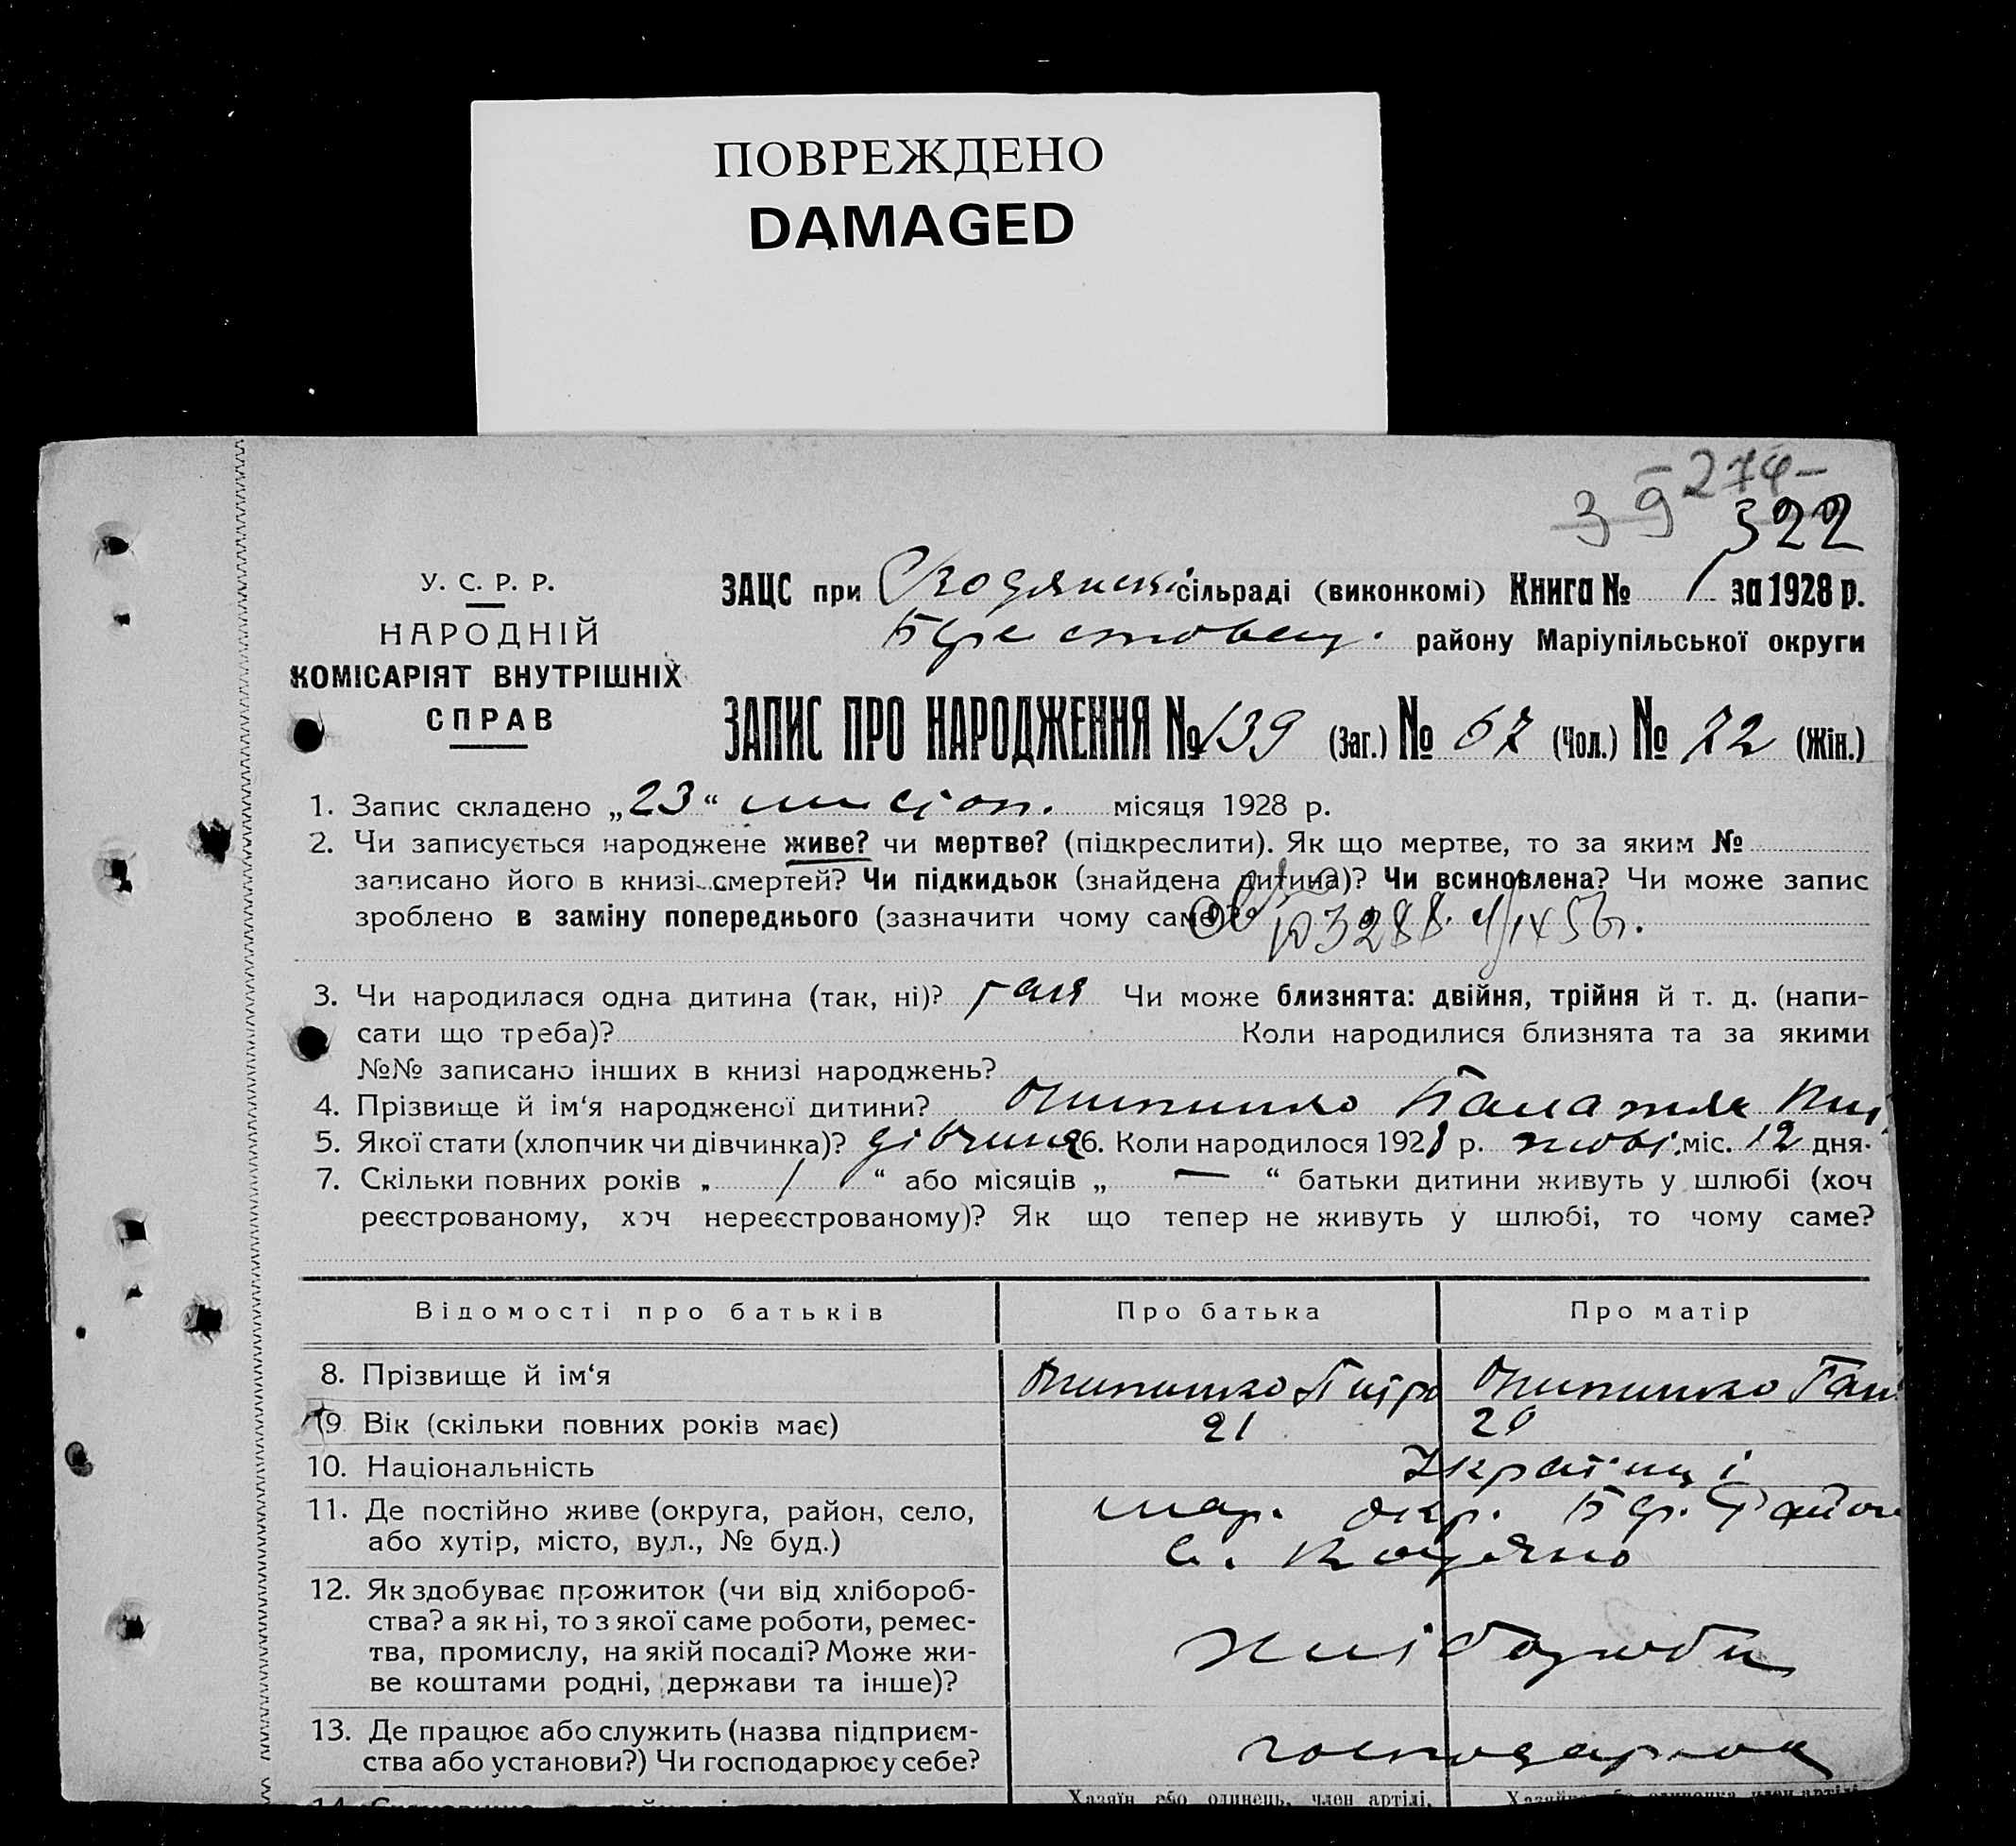 ПОВРЕЖДЕНО
DAMAGED
274-
39 322
У. С. Р. Р.
НАРОДНІЙ
КОМІСАРІЯТ ВНУТРІШНІХ
СПРАВ
ЗАЦС при сільраді (виконкомі) Книга № 1 за 1928 р.
району Маріупільської округи
ЗАПИС ПРО НАРОДЖЕННЯ № 139 (Заг.) № 67 (Чол.) № 72 (Жін.)
1. Запис складено „23“ місяця 1928 р.
2. Чи записується народжене живе? чи мертве? (підкреслити). Як що мертве, то за яким №
записано його в книзі смертей? Чи підкидьок (знайдена дитина)? Чи всиновлена? Чи може запис
зроблено в заміну попереднього (зазначити чому саме)?
3. Чи народилася одна дитина (так, ні)? Чи може близнята: двійня, трійня й т. д. (напи-
сати що треба)? Коли народилися близнята та за якими
№№ записано інших в книзі народжень?
4. Прізвище й ім‘я народженої дитини?
5. Якої стати (хлопчик чи дівчинка)? дівчина 6. Коли народилось 1928 р. жовт. міс. 12 дня.
7. Скільки повних років „ 1 “ або місяців „ — “ батьки дитини живуть у шлюбі (хоч
реєстрованому, хоч нереєстрованому)? Як що тепер не живуть у шлюбі, то чому саме?
Відомості про батьків Про батька Про матір
8. Прізвище й ім‘я
9 Вік (скільки повних років має) 21 20
10. Національність Українці
11. Де постійно живе (округа, район, село, мар. окр. район
або хутір, місто, вул., № буд.)
12. Як здобуває прожиток (чи від хлібороб-
ства? а як ні, то з якої саме роботи, ремес-
тва, промислу, на якій посаді? Може жи-
ве коштами родні, держави та інше)?
13. Де працює або служить (назва підприєм-
ства або установи?) Чи господарює у себе?
Хазяїн або одинець, член артілі,